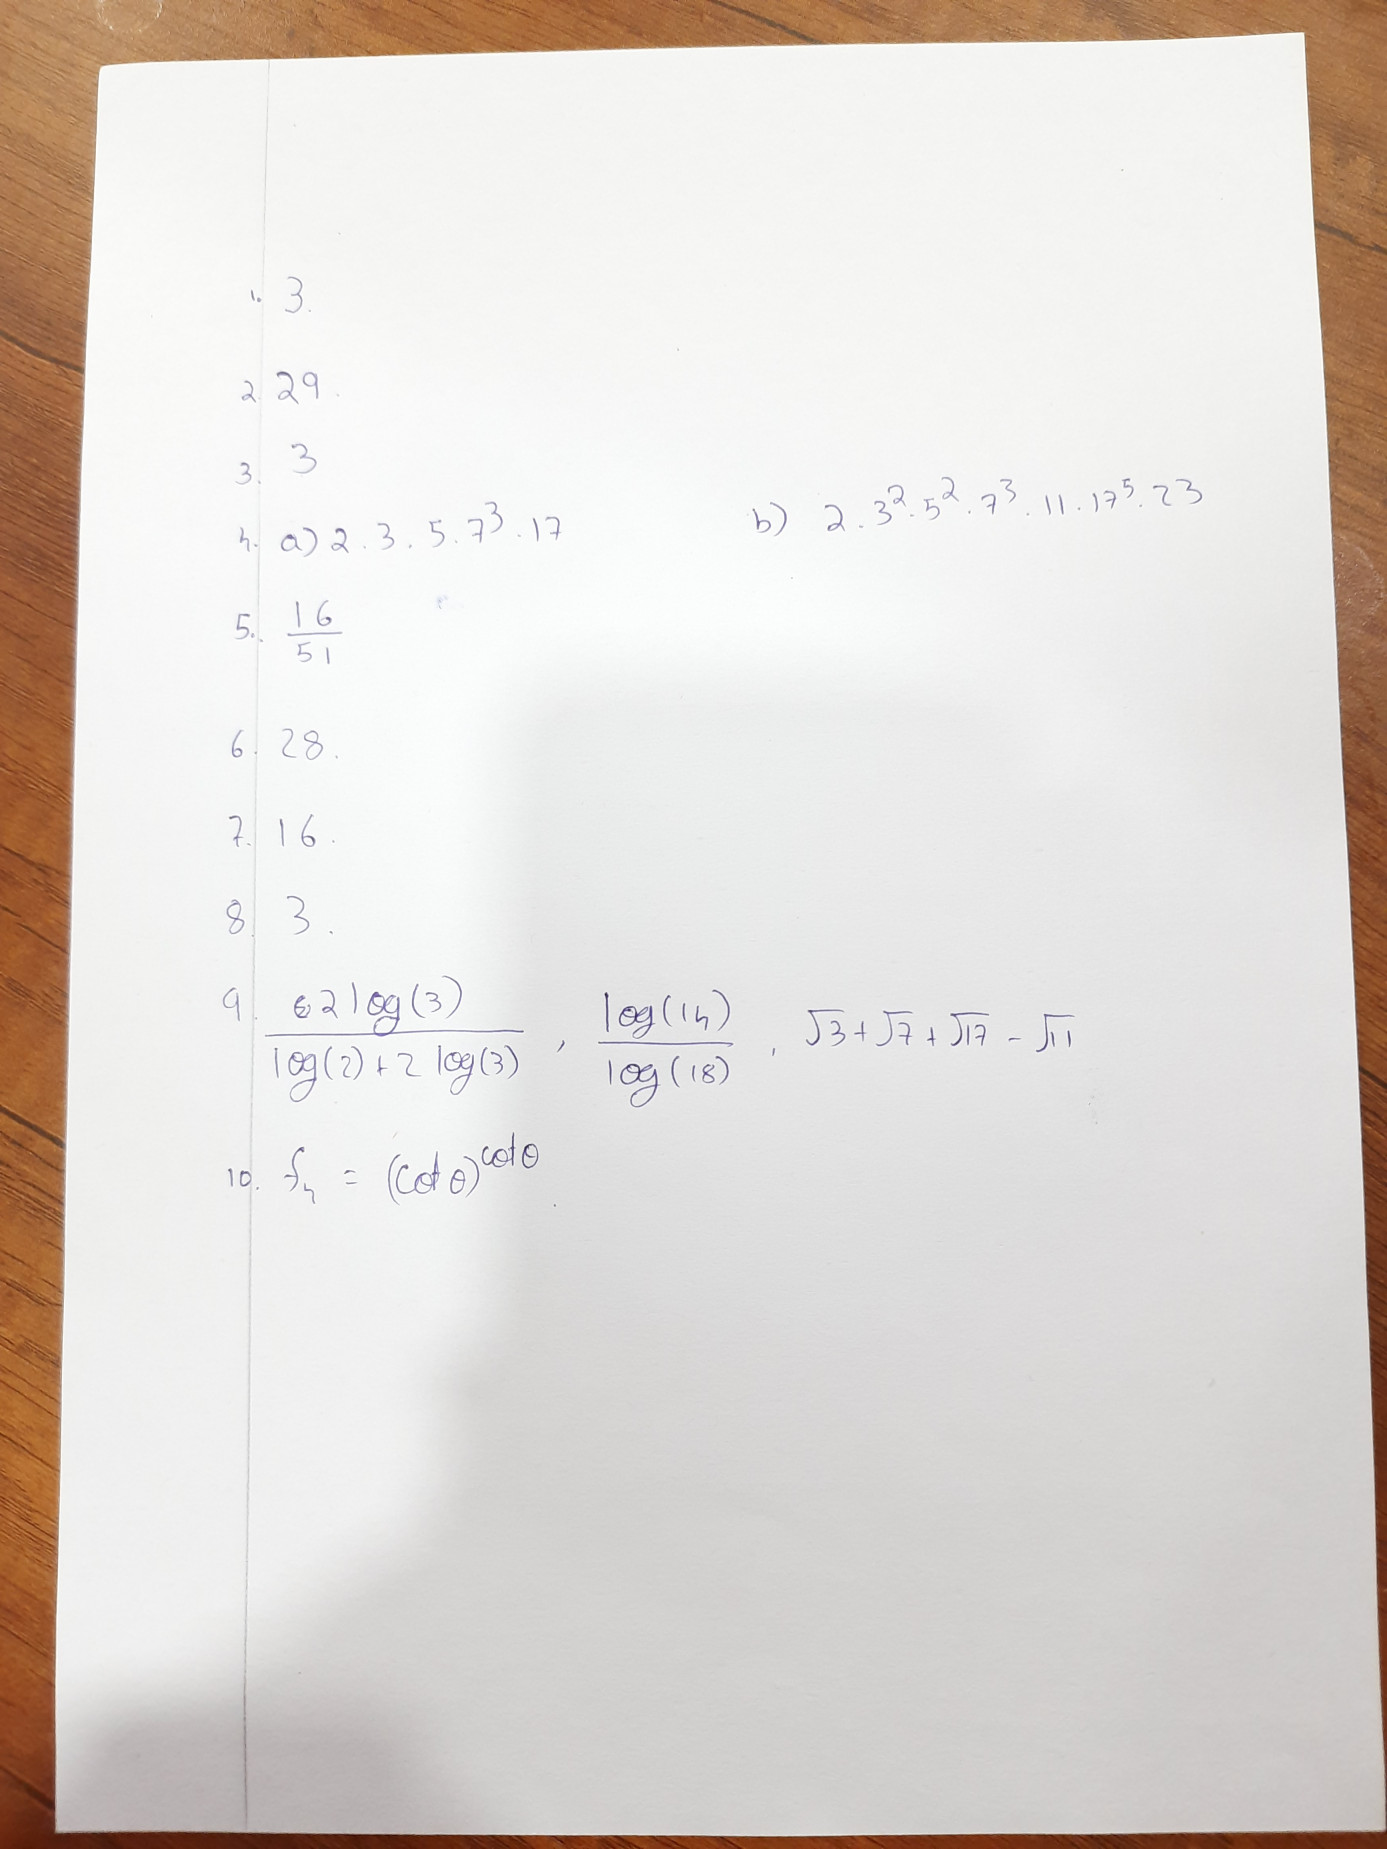 1. 3.
2. 29.
3. 3
4. a) 2 . 3 . 5 . 7³ . 17 b) 2 . 3² . 5² . 7³ . 11 . 17⁵ . 23
5. 16/51
6. 28.
7. 16.
8. 3.
9. 62 log(3) / log(2) + 2 log(3) , log(14) / log(18) , √3 + √7 + √17 - √11
10. f₄ = (cot θ)^cot θ